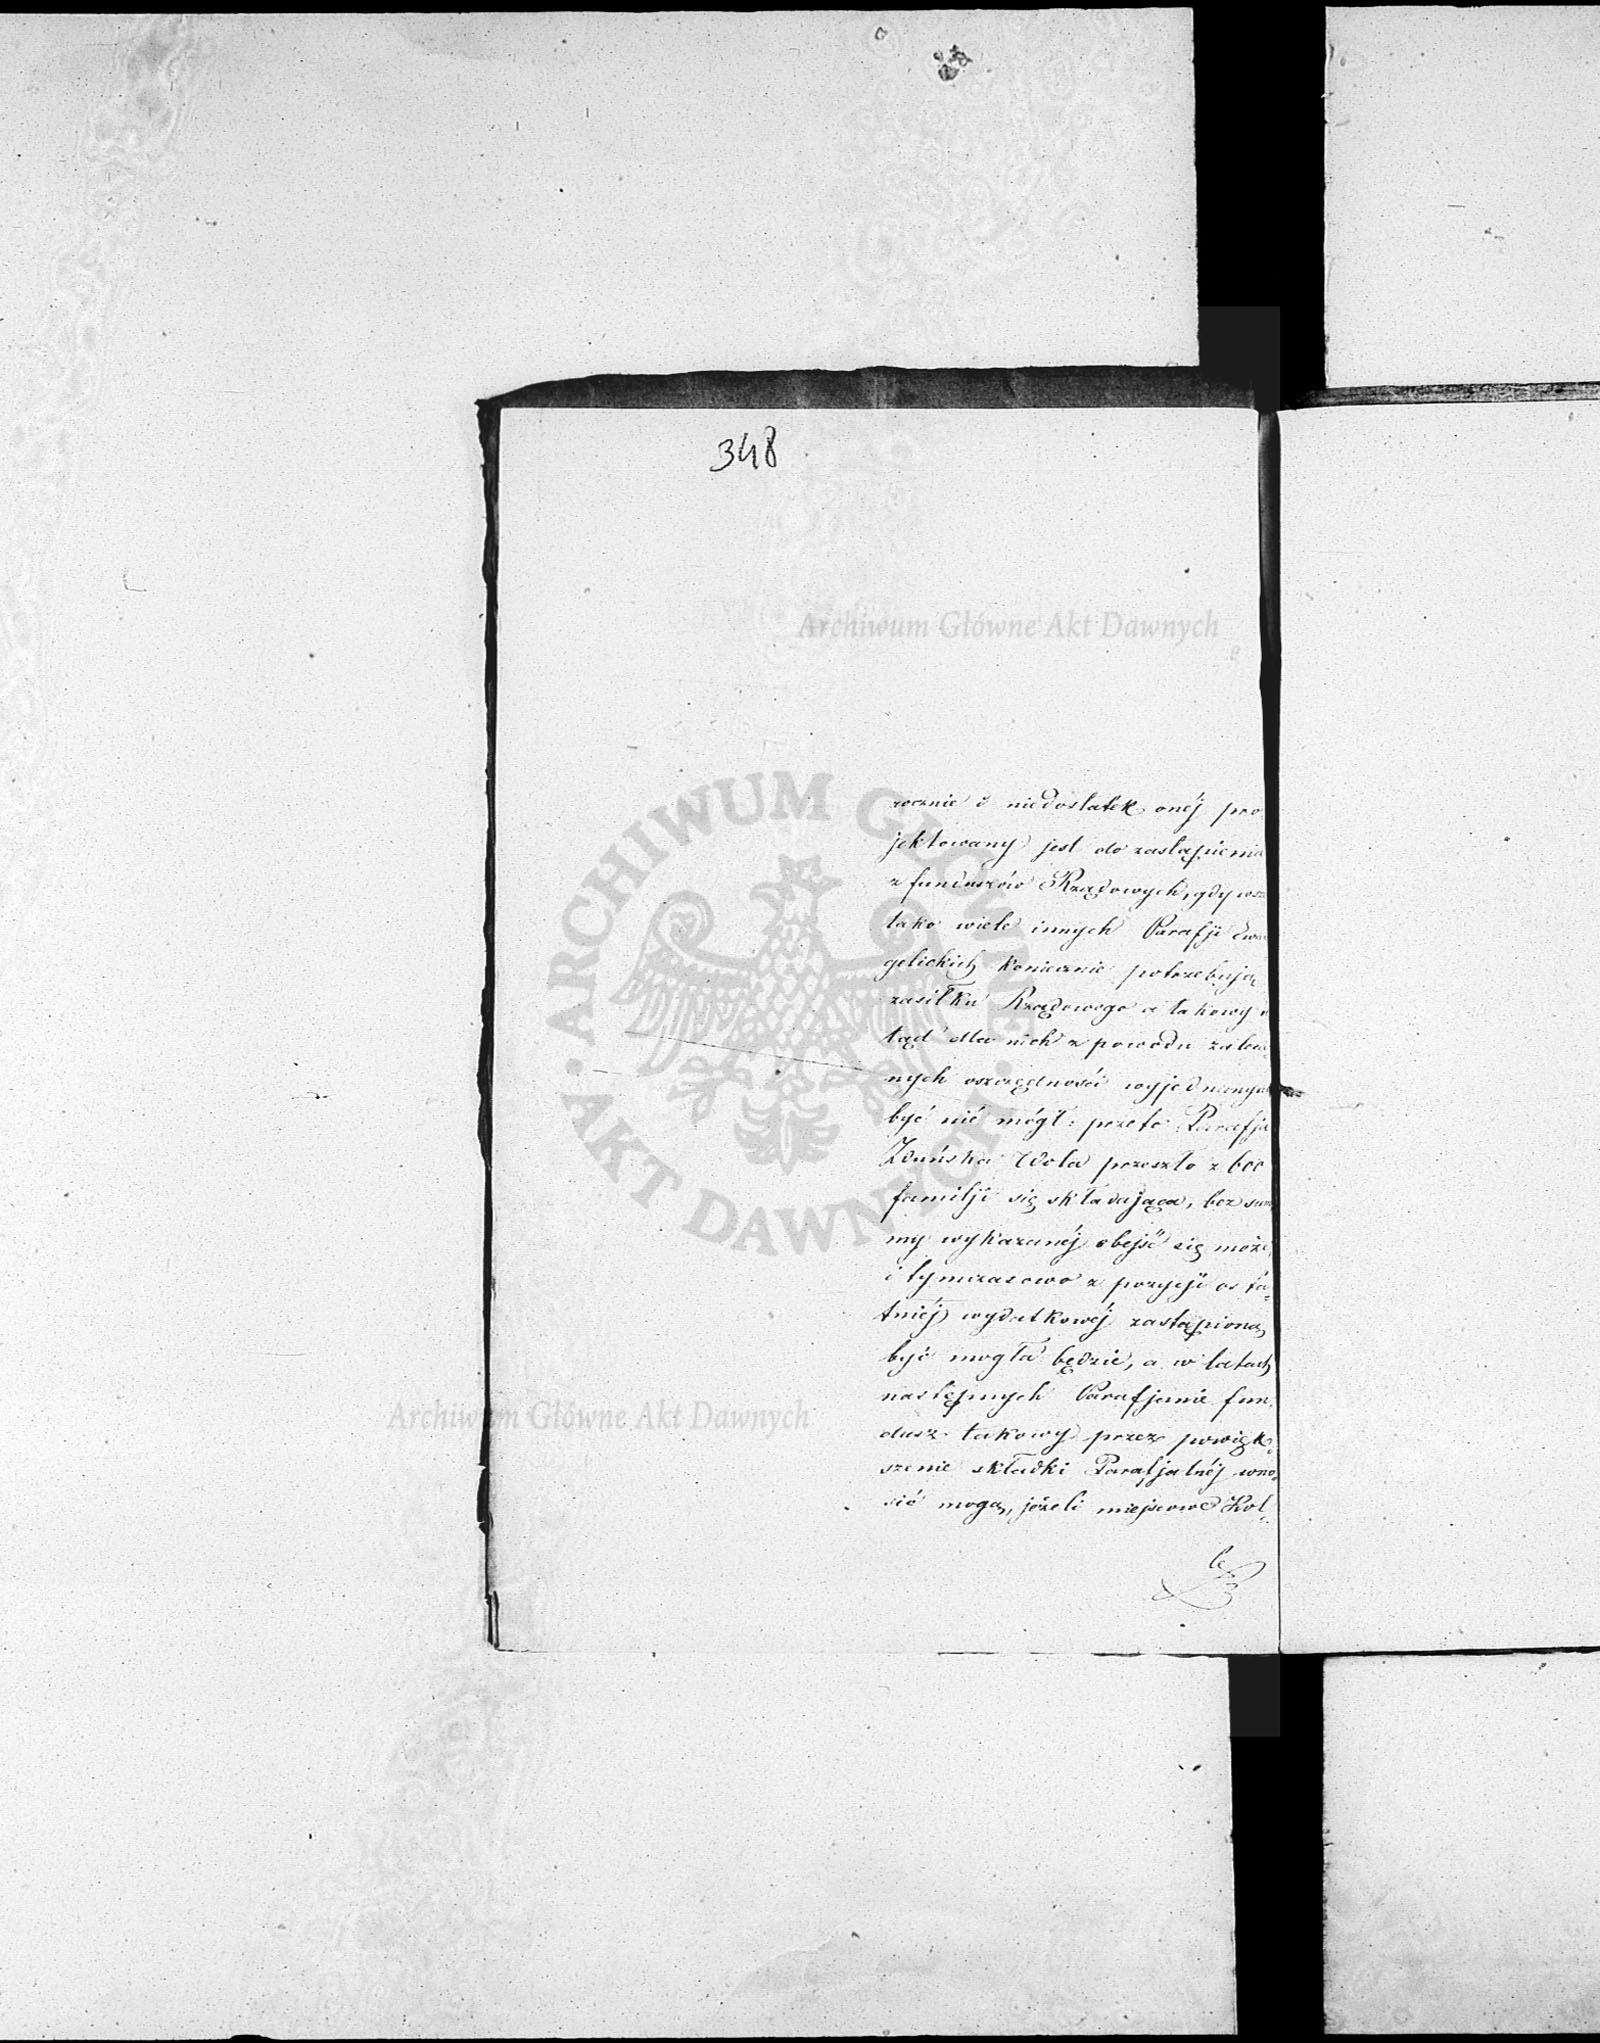 348
Archiwum Główne Akt Dawnych
ARCHIWUM GŁÓWNE · AKT DAWNYCH ·
rocznie i niedostatek onéj pro
jektowany jest do zastąpienia
z funduszów Rządowych, gdy wsz
tako wiele innych Parafji Ewa
gelickich koniecznie potrzebują
zasiłku Rządowego a takowy
tąd dla nich z powodu zalec
nych oszczędności wyjednanym
być nie mógł: przeto Parafja
Zduńska Wola przeszło z 600
familji się składająca, bez sum
my wykazanéj obejść się może
i tymczasowo z pozycji osta-
tniéj wydatkowéj zastąpioną
być mogła będzie, a w latach
następnych Parafjanie fun
dusz takowy przez powięk-
szenie składki Parafjalnéj wno-
sić mogą, jeżeli miejscowe Kol-
le
Archiwum Główne Akt Dawnych